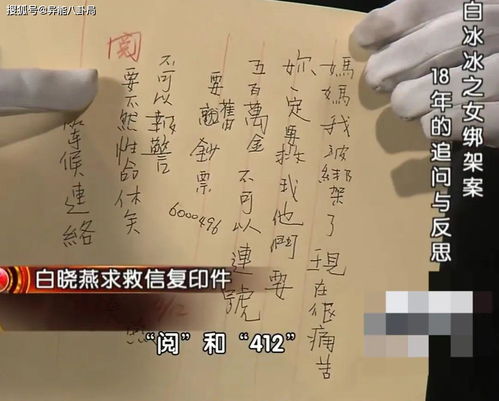 搜狐号@异能八卦局
白冰冰之女绑架案
18年的追问与反思
媽媽我被綁架了 現在很痛苦
妳一定要救我他們要
五百萬金 不可以連號
要 舊 鈔票
6000496
不可以報警
要不然性命休矣
等候連絡
閱
白晓燕求救信复印件
“阅”和“412”